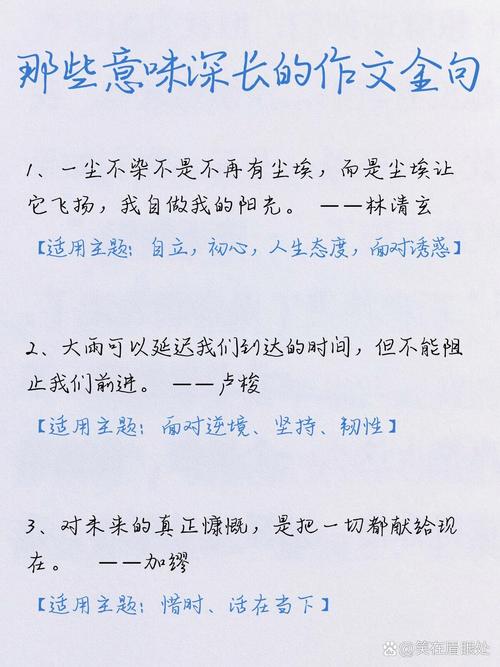 那些意味深长的作文金句
1、一尘不染不是不再有尘埃，而是尘埃让
它飞扬，我自做我的阳光。 ——林清玄
【适用主题：自立，初心，人生态度，面对诱惑】
2、大雨可以延迟我们到达的时间，但不能阻
止我们前进。 ——卢梭
【适用主题：面对逆境、坚持、韧性】
3、对未来的真正慷慨，是把一切都献给现
在。 ——加缪
【适用主题：惜时、活在当下】
笑在眉眼处